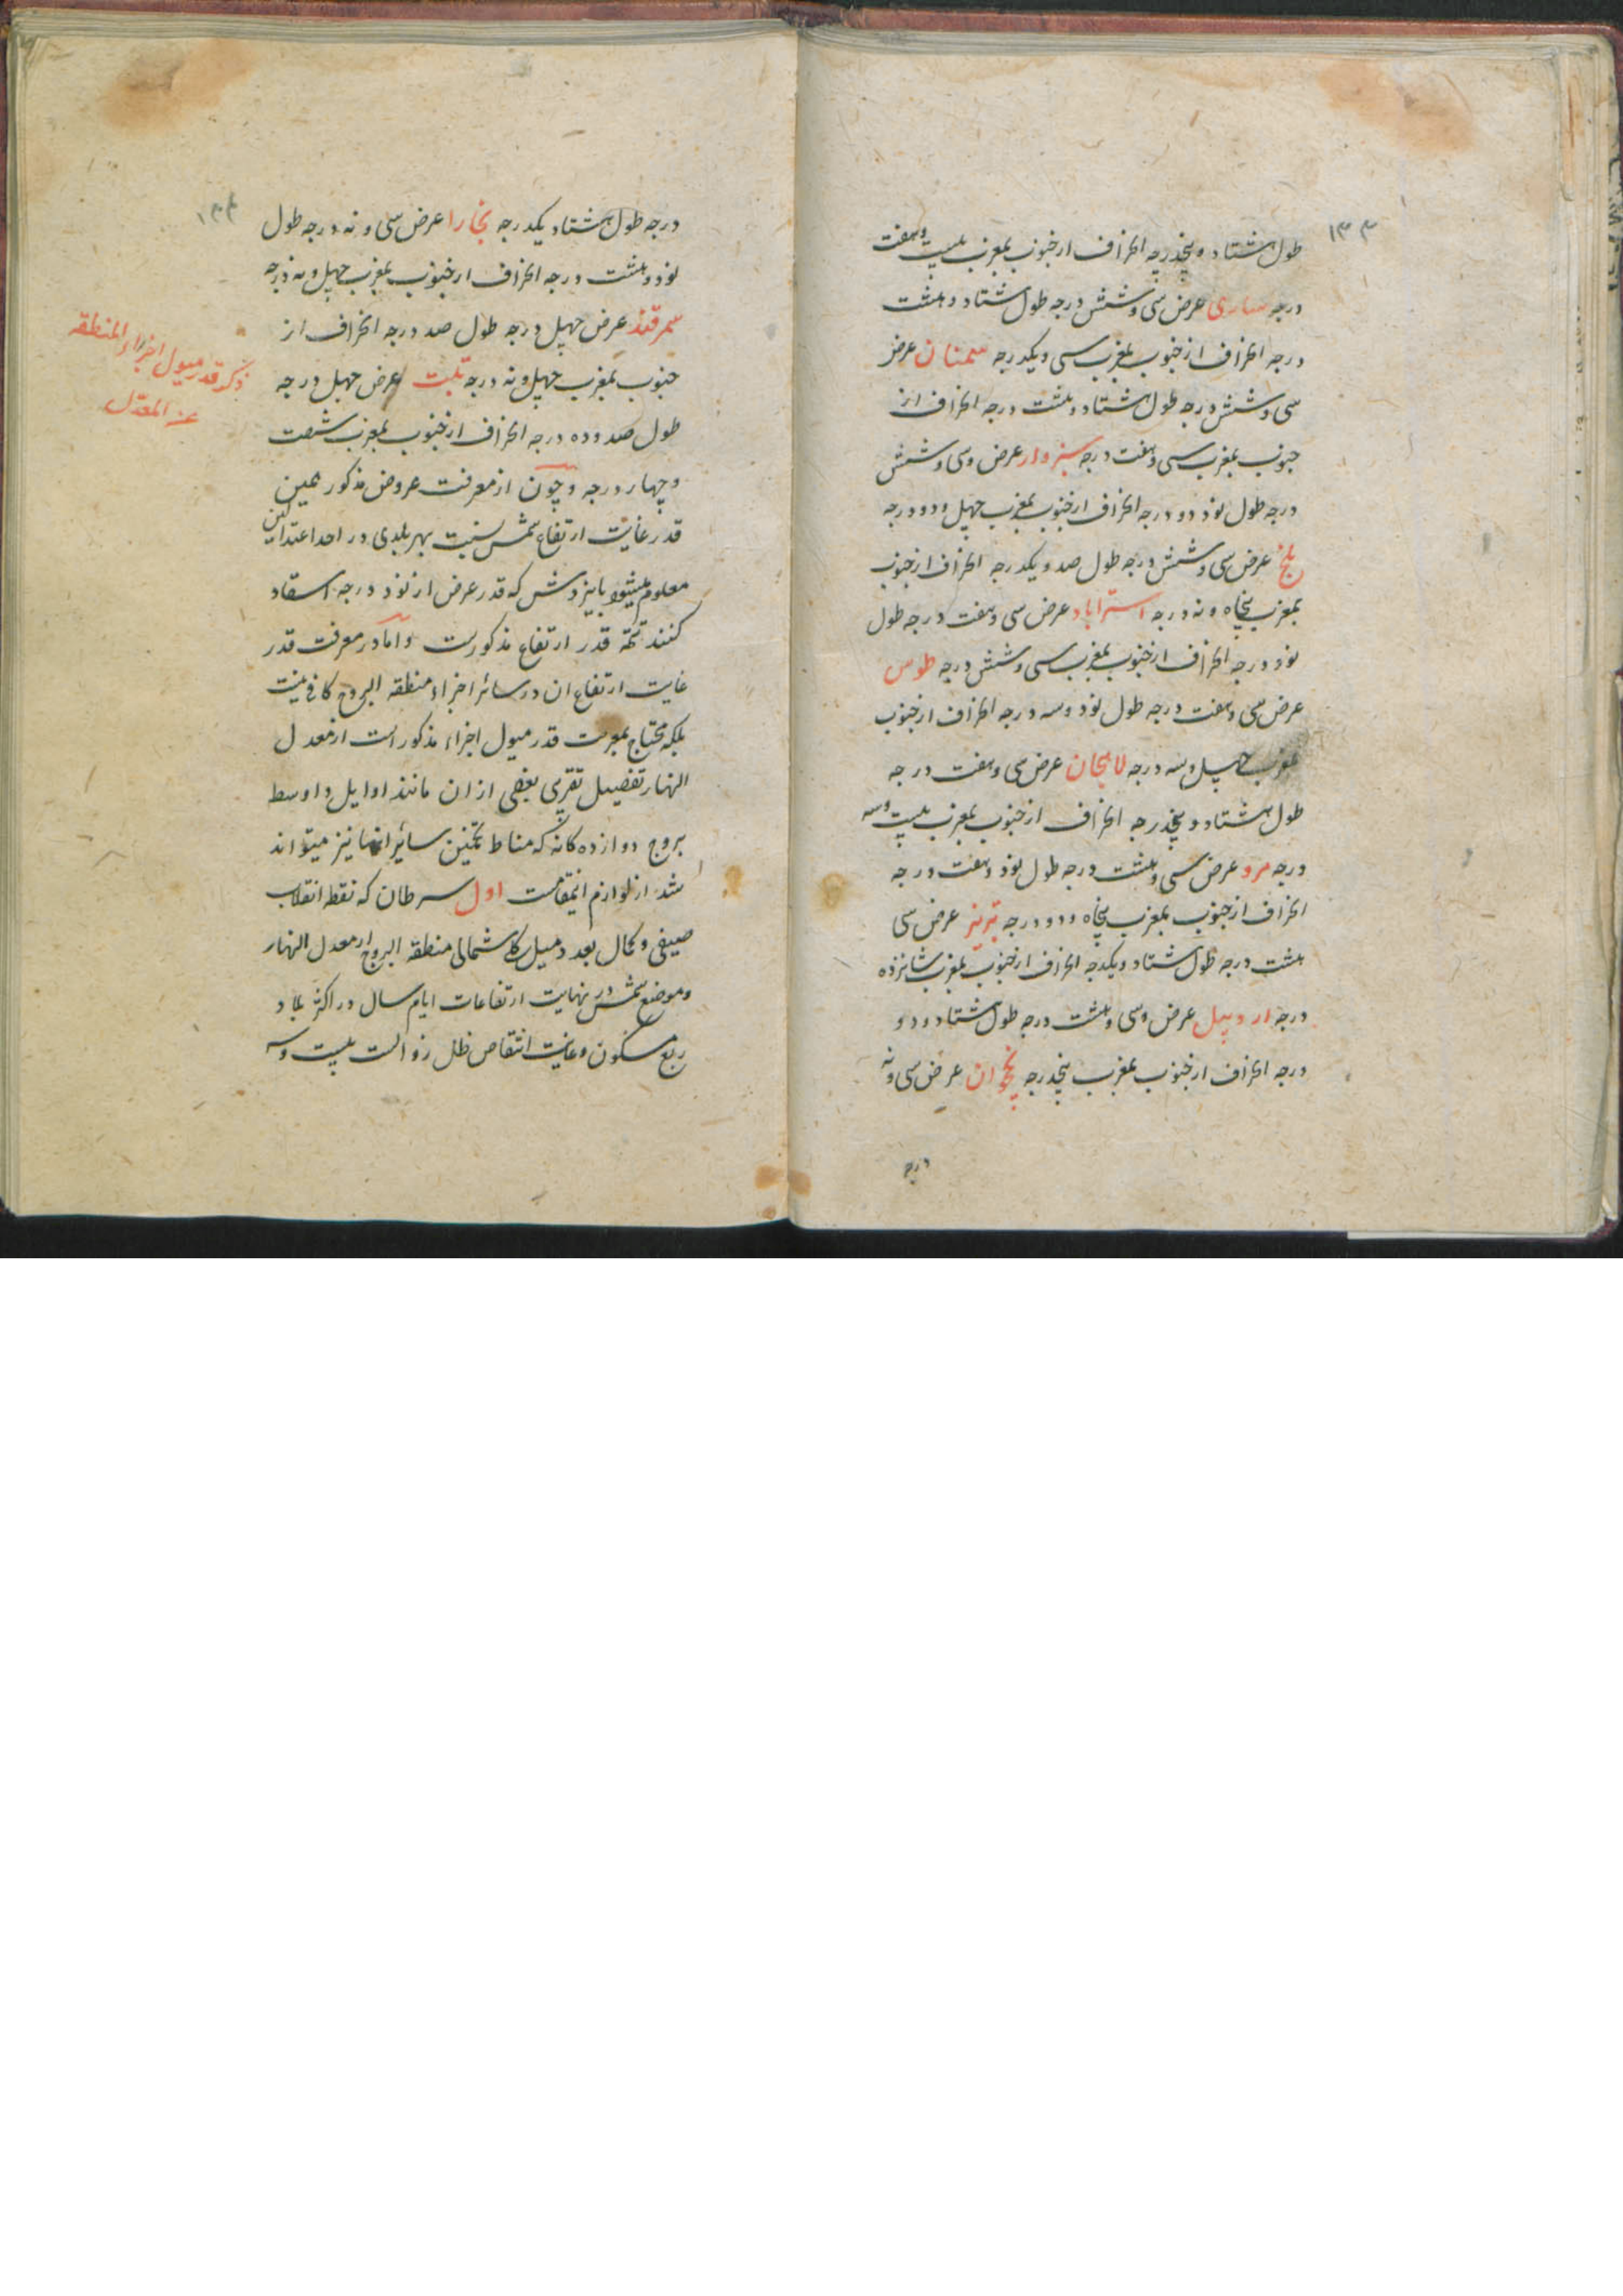 ۱۳۳
طول هشتاد و پنجدرجه انحراف از جنوب بمغرب بیست و هفت
درجه ساری عرض سی و شش درجه طول هشتاد و هشت
درجه انحراف از جنوب بمغرب سی و یکدرجه سمنان عرض
سی و شش درجه طول هشتاد و هشت درجه انحراف از
جنوب بمغرب سی و هفت درجه سبزوار عرض وسی و شش
درجه طول نود دو درجه انحراف از جنوب بمغرب چهل و دو درجه
بلخ عرض سی و شش درجه طول صد و یکدرجه انحراف از جنوب
بمغرب پنجاه و نه درجه استراباد عرض سی و هفت درجه طول
نود درجه انحراف از جنوب بمغرب سی و شش درجه طوس
عرض سی و هفت درجه طول نود و سه درجه انحراف از جنوب
بمغرب چهل و سه درجه لاهجان عرض سی و هفت درجه
طول هشتاد و پنجدرجه انحراف از جنوب بمغرب بیست و سه
درجه مرو عرض سی و هشت درجه طول نود و هفت درجه
انحراف از جنوب بمغرب پنجاه و دو درجه تبریز عرض سی
هشت درجه طول هشتاد و یکدرجه انحراف از جنوب بمغرب شانزده
درجه اردبیل عرض وسی و هشت درجه طول هشتاد و دو
درجه انحراف از جنوب بمغرب پنجدرجه نخجوان عرض سی و نه
درجه
۱۳۴
درجه طول هشتاد یکدرجه بخارا عرض سی و نه درجه طول
نود و هشت درجه انحراف از جنوب بمغرب چهل و نه درجه
سمرقند عرض چهل درجه طول صد درجه انحراف از
جنوب بمغرب چهل و نه درجه تبت عرض چهل درجه
طول صد و ده درجه انحراف از جنوب بمغرب شصت
و چهار درجه و چون از معرفت عروض مذکور همین
قدر غایت ارتفاع شمس نسبت بهر بلدی در احد اعتدالین
معلوم میشود بانیزدش که قدر عرض از نود درجه اسقاد
کنند تتمه قدر ارتفاع مذکورست و اما در معرفت قدر
غایت ارتفاع ان در سائر اجزاء منطقه البروج کافی نیست
بلکه محتاج بمعرفت قدر میول اجزاء مذکور است از معدل
النهار تفصیل تقری بعضی از ان مانند اوایل و اوسط
بروج دوازده کانه که مناط تخمین سائر انها نیز میتواند
شد از لوازم اینمقامست اول سرطان که نقطه انقلاب
صیفی و کمال بعد و میل کلی شمالی منطقه البروج از معدل النهار
و موضع شمس در نهایت ارتفاعات ایام سال در اکثر بلاد
ربع مسکون و غایت انتقاص ظل زوالست بیست و سه
ذکر قدر میول اجزاء المنطقه
عن المعدل